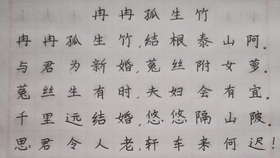 冉冉孤生竹
冉冉孤生竹,结根泰山阿。
与君为新婚,菟丝附女萝。
菟丝生有时,夫妇会有宜。
千里远结婚,悠悠隔山陂。
思君令人老,轩车来何迟!